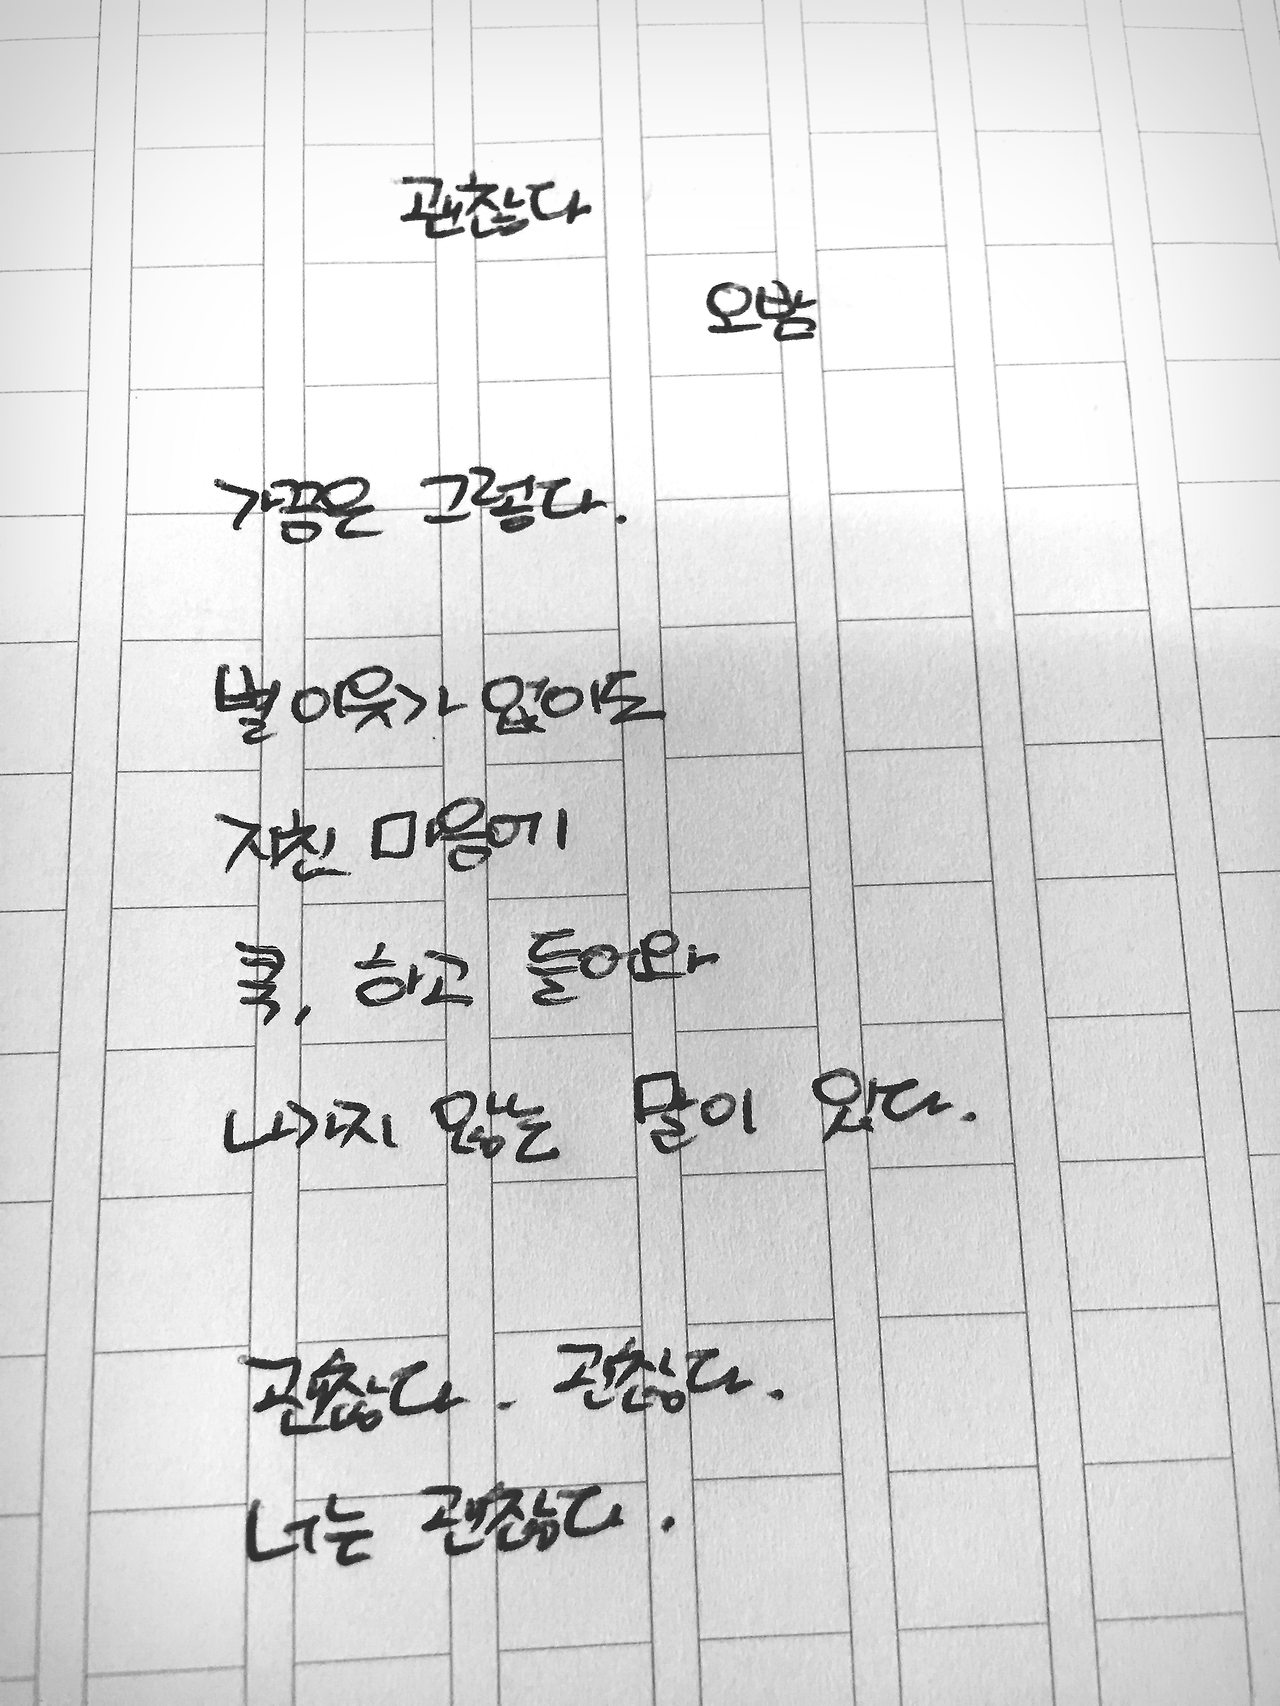 괜찮다
오밤
가끔은 그렇다.
별 이웃가 없어도
지친 마음에
쿡, 하고 들어와
나가지 않는 말이 있다.
괜찮다. 괜찮다.
너는 괜찮다.